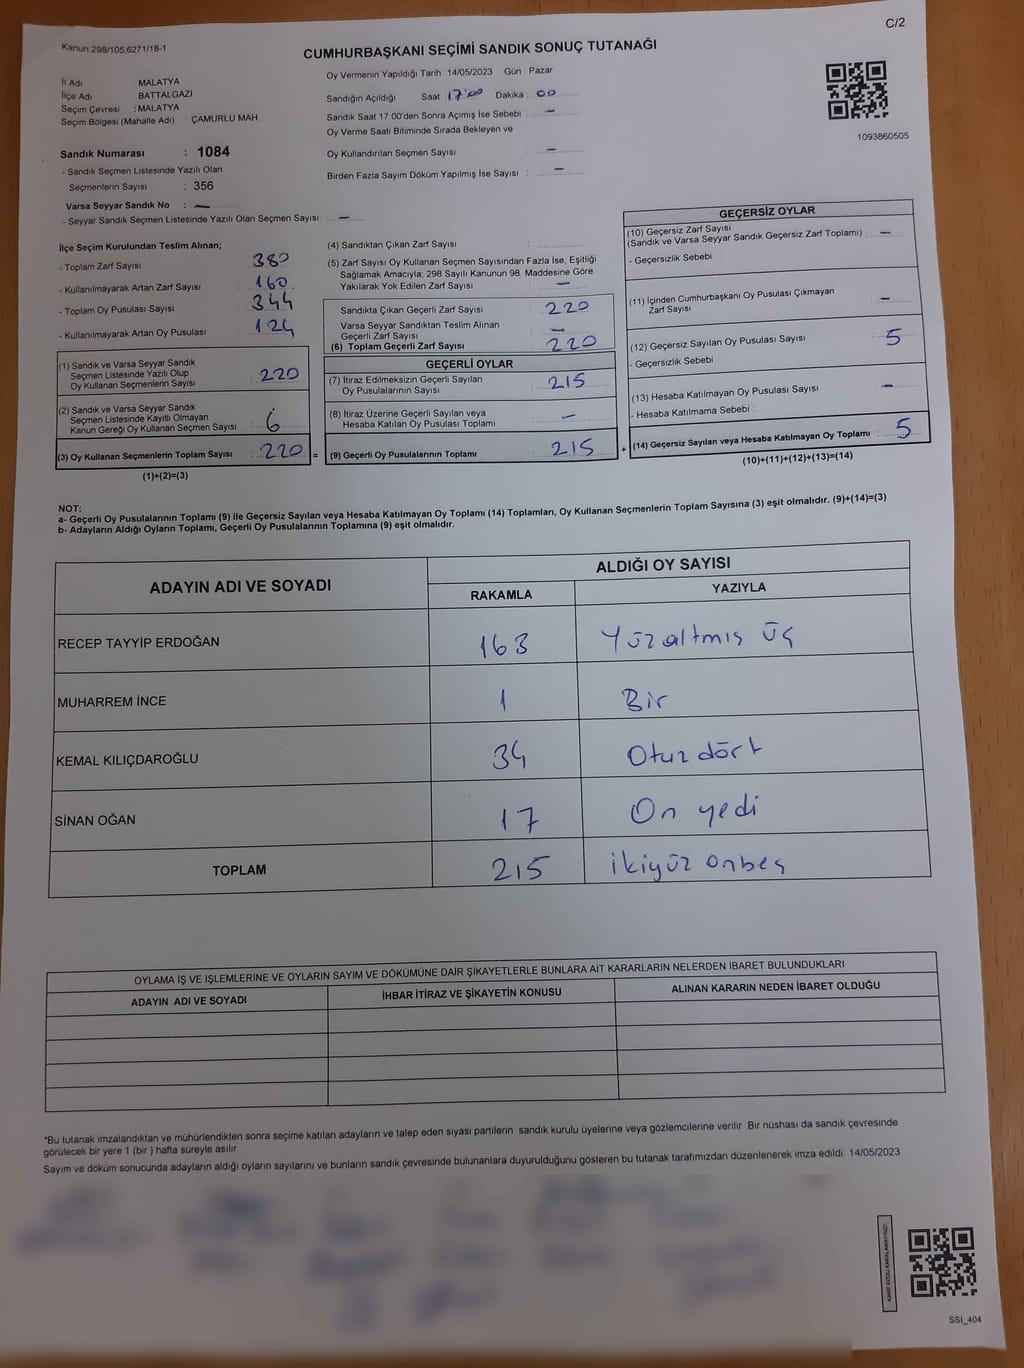 C/2
Kanun:298/105,6271/18-1
CUMHURBAŞKANI SEÇİMİ SANDIK SONUÇ TUTANAĞI
İl Adı : MALATYA
İlçe Adı : BATTALGAZİ
Seçim Çevresi : MALATYA
Seçim Bölgesi (Mahalle Adı) : ÇAMURLU MAH
Sandık Numarası : 1084
- Sandık Seçmen Listesinde Yazılı Olan
Seçmenlerin Sayısı : 356
Varsa Seyyar Sandık No : —
- Seyyar Sandık Seçmen Listesinde Yazılı Olan Seçmen Sayısı: —
Oy Vermenin Yapıldığı Tarih :14/05/2023 Gün : Pazar
Sandığın Açıldığı Saat : 17:00 Dakika : 00
Sandık Saat 17:00'den Sonra Açımış İse Sebebi : —
Oy Verme Saati Bitiminde Sırada Bekleyen ve
Oy Kullandırılan Seçmen Sayısı : —
Birden Fazla Sayım Döküm Yapılmış İse Sayısı : —
1093860505
İlçe Seçim Kurulundan Teslim Alınan;
- Toplam Zarf Sayısı : 380
- Kullanılmayarak Artan Zarf Sayısı : 160
- Toplam Oy Pusulası Sayısı : 344
- Kullanılmayarak Artan Oy Pusulası : 124
(1) Sandık ve Varsa Seyyar Sandık
Seçmen Listesinde Yazılı Olup
Oy Kullanan Seçmenlerin Sayısı : 220
(2) Sandık ve Varsa Seyyar Sandık
Seçmen Listesinde Kayıtlı Olmayan
Kanun Gereği Oy Kullanan Seçmen Sayısı : 6
(3) Oy Kullanan Seçmenlerin Toplam Sayısı : 220 =
(1)+(2)=(3)
(4) Sandıktan Çıkan Zarf Sayısı :
(5) Zarf Sayısı Oy Kullanan Seçmen Sayısından Fazla İse, Eşitliği
Sağlamak Amacıyla; 298 Sayılı Kanunun 98. Maddesine Göre
Yakılarak Yok Edilen Zarf Sayısı : —
Sandıkta Çıkan Geçerli Zarf Sayısı : 220
Varsa Seyyar Sandıktan Teslim Alınan
Geçerli Zarf Sayısı : —
(6) Toplam Geçerli Zarf Sayısı : 220
GEÇERLİ OYLAR
(7) İtiraz Edilmeksizin Geçerli Sayılan
Oy Pusulalarının Sayısı : 215
(8) İtiraz Üzerine Geçerli Sayılan veya
Hesaba Katılan Oy Pusulası Toplamı : —
(9) Geçerli Oy Pusulalarının Toplamı : 215 +
GEÇERSİZ OYLAR
(10) Geçersiz Zarf Sayısı
(Sandık ve Varsa Seyyar Sandık Geçersiz Zarf Toplamı) : —
- Geçersizlik Sebebi :
(11) İçinden Cumhurbaşkanı Oy Pusulası Çıkmayan
Zarf Sayısı : —
(12) Geçersiz Sayılan Oy Pusulası Sayısı : 5
- Geçersizlik Sebebi :
(13) Hesaba Katılmayan Oy Pusulası Sayısı : —
- Hesaba Katılmama Sebebi :
(14) Geçersiz Sayılan veya Hesaba Katılmayan Oy Toplamı : 5
(10)+(11)+(12)+(13)=(14)
NOT:
a- Geçerli Oy Pusulalarının Toplamı (9) ile Geçersiz Sayılan veya Hesaba Katılmayan Oy Toplamı (14) Toplamları, Oy Kullanan Seçmenlerin Toplam Sayısına (3) eşit olmalıdır. (9)+(14)=(3)
b- Adayların Aldığı Oyların Toplamı, Geçerli Oy Pusulalarının Toplamına (9) eşit olmalıdır.
ADAYIN ADI VE SOYADI
ALDIĞI OY SAYISI
RAKAMLA YAZIYLA
RECEP TAYYİP ERDOĞAN 163 Yüzaltmış üç
MUHARREM İNCE 1 Bir
KEMAL KILIÇDAROĞLU 34 Otuz dört
SİNAN OĞAN 17 On yedi
TOPLAM 215 ikiyüz onbeş
OYLAMA İŞ VE İŞLEMLERİNE VE OYLARIN SAYIM VE DÖKÜMÜNE DAİR ŞİKAYETLERLE BUNLARA AİT KARARLARIN NELERDEN İBARET BULUNDUKLARI
ADAYIN ADI VE SOYADI İHBAR İTİRAZ VE ŞİKAYETİN KONUSU ALINAN KARARIN NEDEN İBARET OLDUĞU
*Bu tutanak imzalandıktan ve mühürlendikten sonra seçime katılan adayların ve talep eden siyasi partilerin sandık kurulu üyelerine veya gözlemcilerine verilir. Bir nüshası da sandık çevresinde
görülecek bir yere 1 (bir ) hafta süreyle asılır.
Sayım ve döküm sonucunda adayların aldığı oyların sayılarını ve bunların sandık çevresinde bulunanlara duyurulduğunu gösteren bu tutanak tarafımızdan düzenlenerek imza edildi. 14/05/2023
KARE KODU KARALAMAYINIZ!
SSİ_404